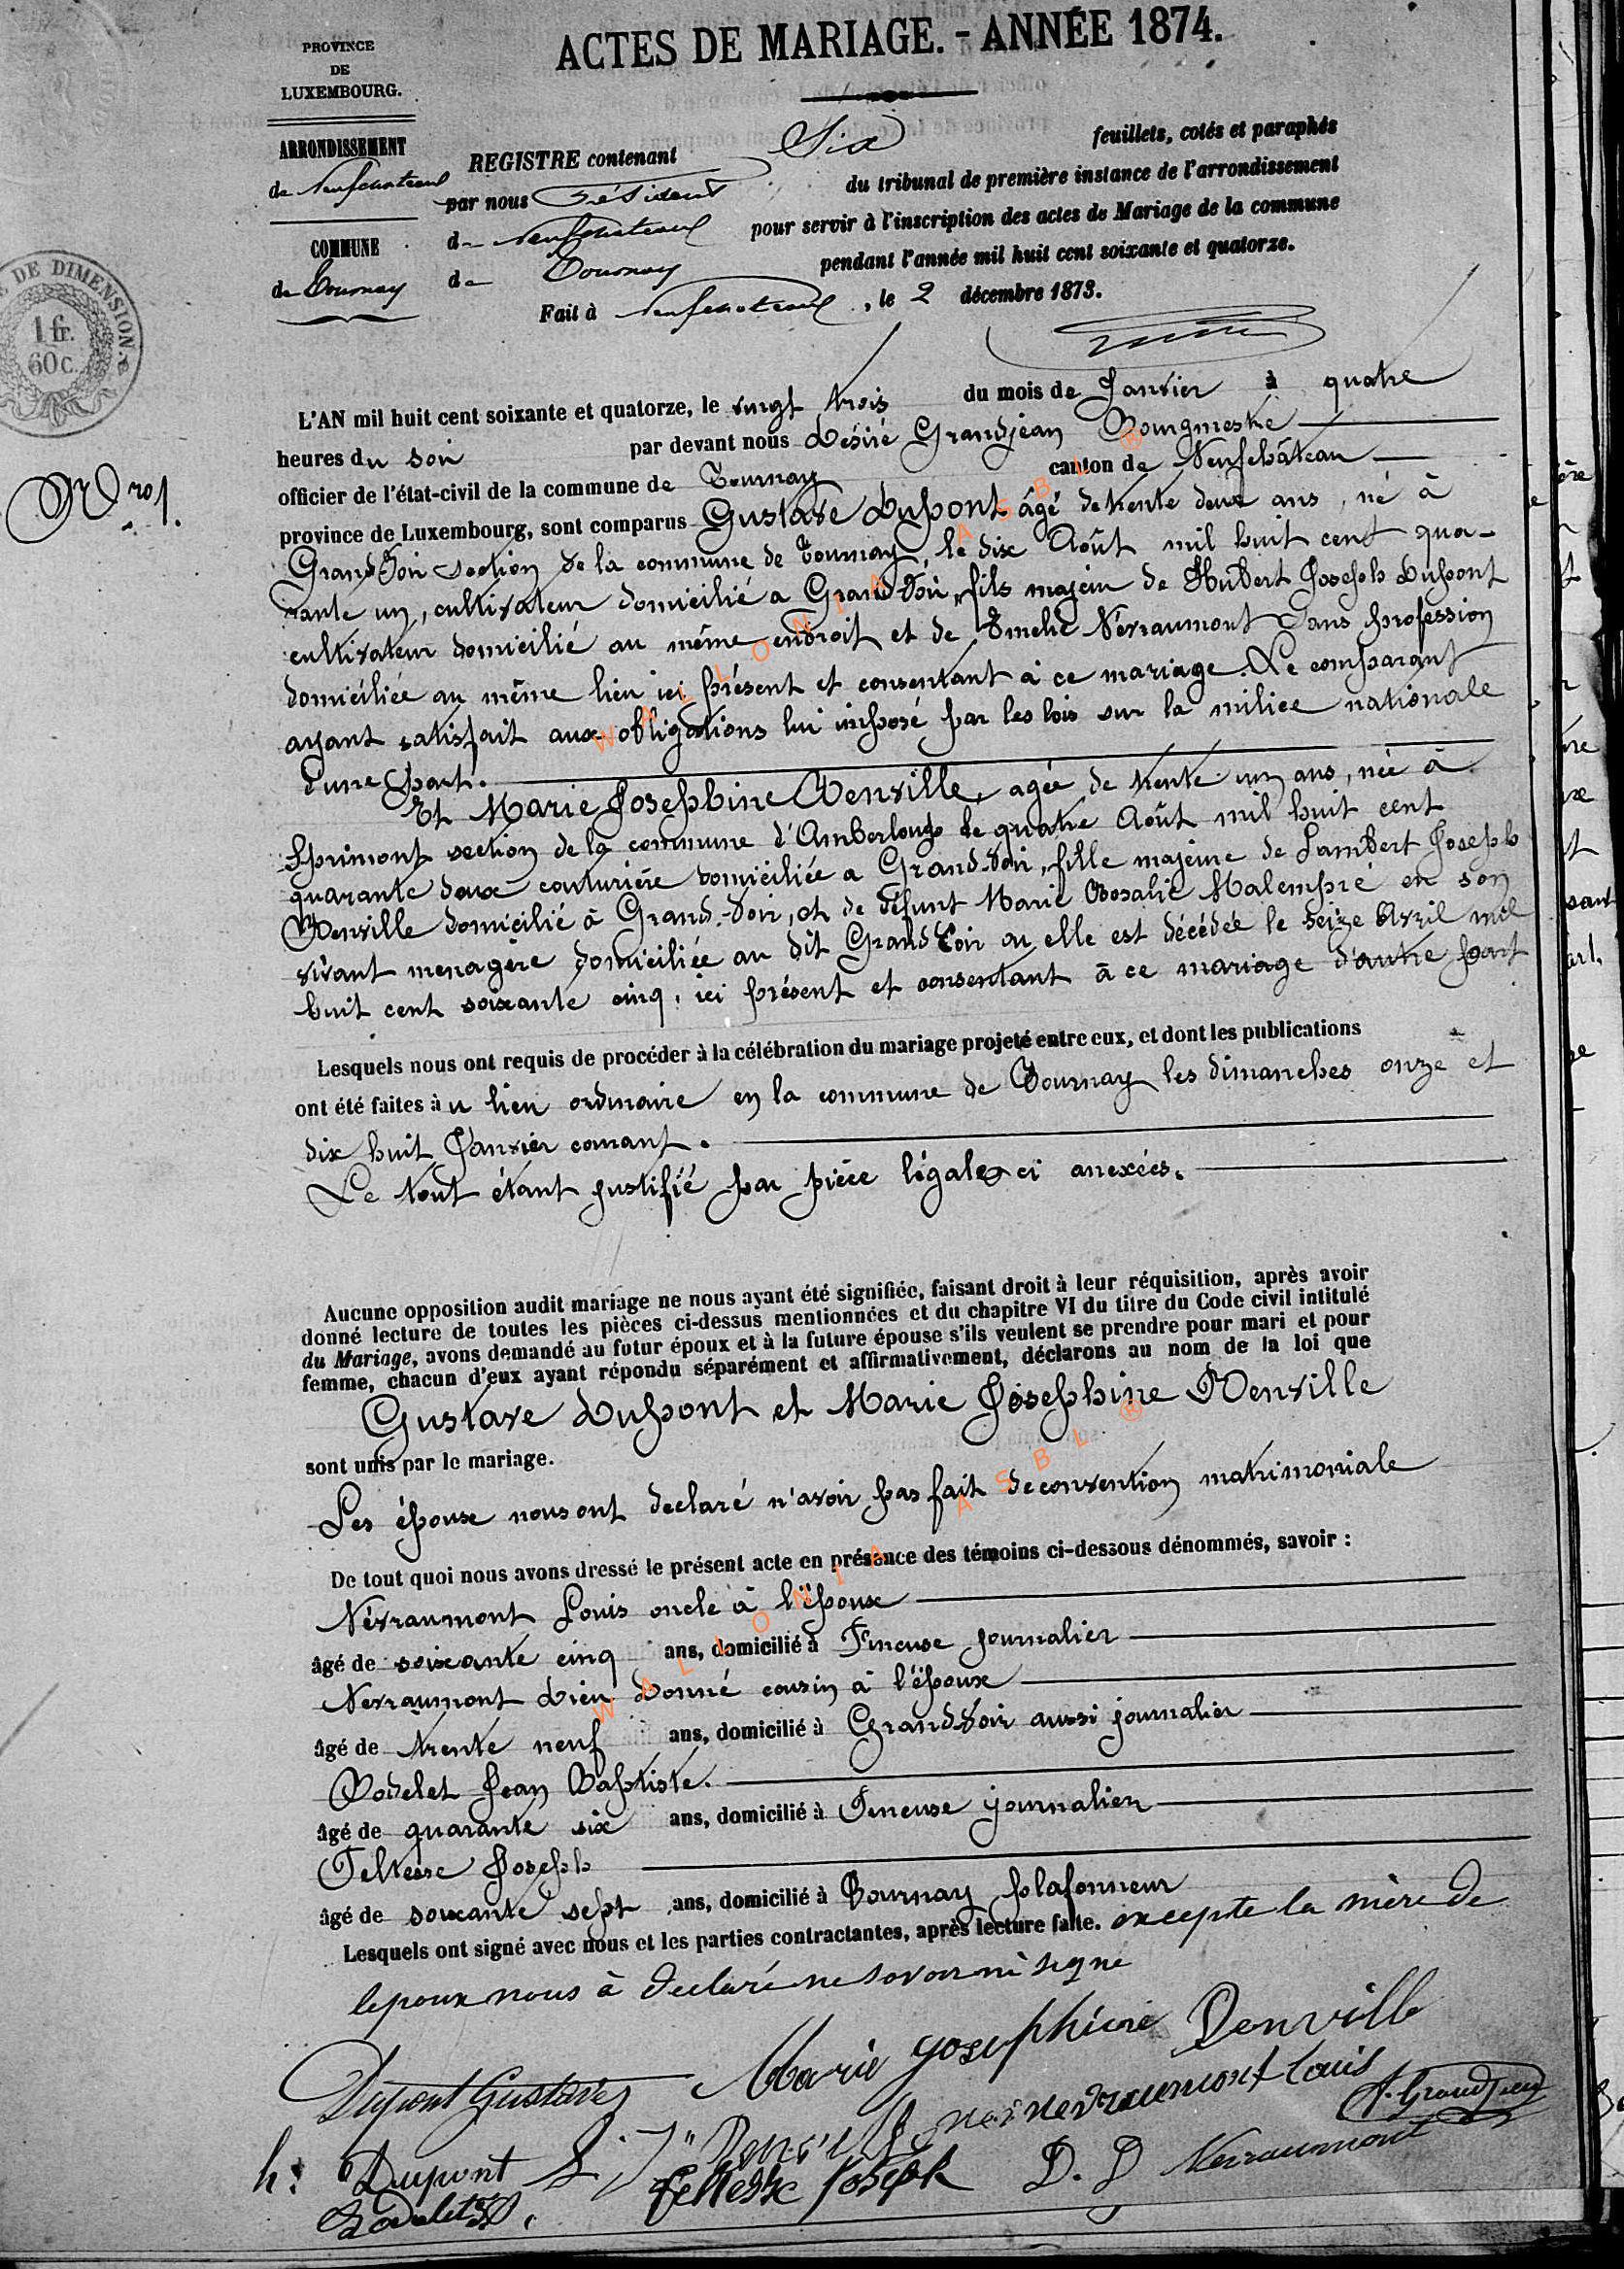 ACTES DE MARIAGE. - ANNÉE 1874.
PROVINCE
DE
LUXEMBOURG.
ARRONDISSEMENT
de Neufchateau
COMMUNE
de Tournay
REGISTRE contenant Six feuillets, cotés et paraphés
par nous Président du tribunal de première instance de l'arrondissement
de Neufchateau pour servir à l'inscription des actes de Mariage de la commune
de Tournay pendant l'année mil huit cent soixante et quatorze.
Fait à Neufchateau, le 2 décembre 1873.
DE DIMENSION.
1 fr.
60 c.
L'AN mil huit cent soixante et quatorze, le vingt trois du mois de Janvier à quatre
heures du soir par devant nous Désiré Grandjean Bourgmestre
officier de l'état-civil de la commune de Tournay canton de Neufchâteau
province de Luxembourg, sont comparus Gustave Dupont âgé de trente deux ans, né à
Grandvoir section de la commune de Tournay, le dix Août mil huit cent qua-
rante un, cultivateur domicilié a Grandvoir, fils majeur de Hubert Joseph Dupont
cultivateur domicilié au même endroit et de Emelie Névraumont sans profession
domiciliée au même lieu ici présent et consentant à ce mariage. Le comparant
ayant satisfait aux obligations lui imposé par les lois sur la milice nationale
d'une part.
Et Marie Josephine Denville, agée de trente un ans, née à
Sprimont section de la commune d'Amberloup le quatre Août mil huit cent
quarante deux couturière domiciliée a Grand-voir, fille majeure de Lambert Joseph
Denville domicilié à Grand-voir, et de défunt Marie Rosalie Malempré en son
vivant menagère domiciliée au dit Grandvoir ou elle est décédée le seize Avril mil
huit cent soixante cinq, ici présent et consentant à ce mariage d'autre part
Lesquels nous ont requis de procéder à la célébration du mariage projeté entre eux, et dont les publications
ont été faites au lieu ordinaire en la commune de Tournay les dimanches onze et
dix huit Janvier courant.
Le tout étant justifié par pièce légales ci anexées.
Aucune opposition audit mariage ne nous ayant été signifiée, faisant droit à leur réquisition, après avoir
donné lecture de toutes les pièces ci-dessus mentionnées et du chapitre VI du titre du Code civil intitulé
du Mariage, avons demandé au futur époux et à la future épouse s'ils veulent se prendre pour mari et pour
femme, chacun d'eux ayant répondu séparément et affirmativement, déclarons au nom de la loi que
Gustave Dupont et Marie Josephine Denville
sont unis par le mariage.
Les épouse nous ont declaré n'avoir pas fait de convention matrimoniale
De tout quoi nous avons dressé le présent acte en présence des témoins ci-dessous dénommés, savoir :
Névraumont Louis oncle à l'époux
âgé de soixante cinq ans, domicilié à Tineuse journalier
Nevraumont Dieudonné cousin à l'époux
âgé de trente neuf ans, domicilié à Grandvoir aussi journalier
Rodelet Jean Baptiste.
âgé de quarante six ans, domicilié à Tineuse journalier
Feltesse Joseph
âgé de soixante sept ans, domicilié à Tournay plafonneur
Lesquels ont signé avec nous et les parties contractantes, après lecture faite. excepte la mère de
lepoux nous à declaré ne savoir ni signé
Dupont Gustave Marie Josephine Denville
nevraumont Louis
D. Grandjean
h: Dupont L. J. Denville
Feltesse Joseph D. D Nevraumont
Rodelet
WALLONIA ASBL ®
WALLONIA ASBL ®